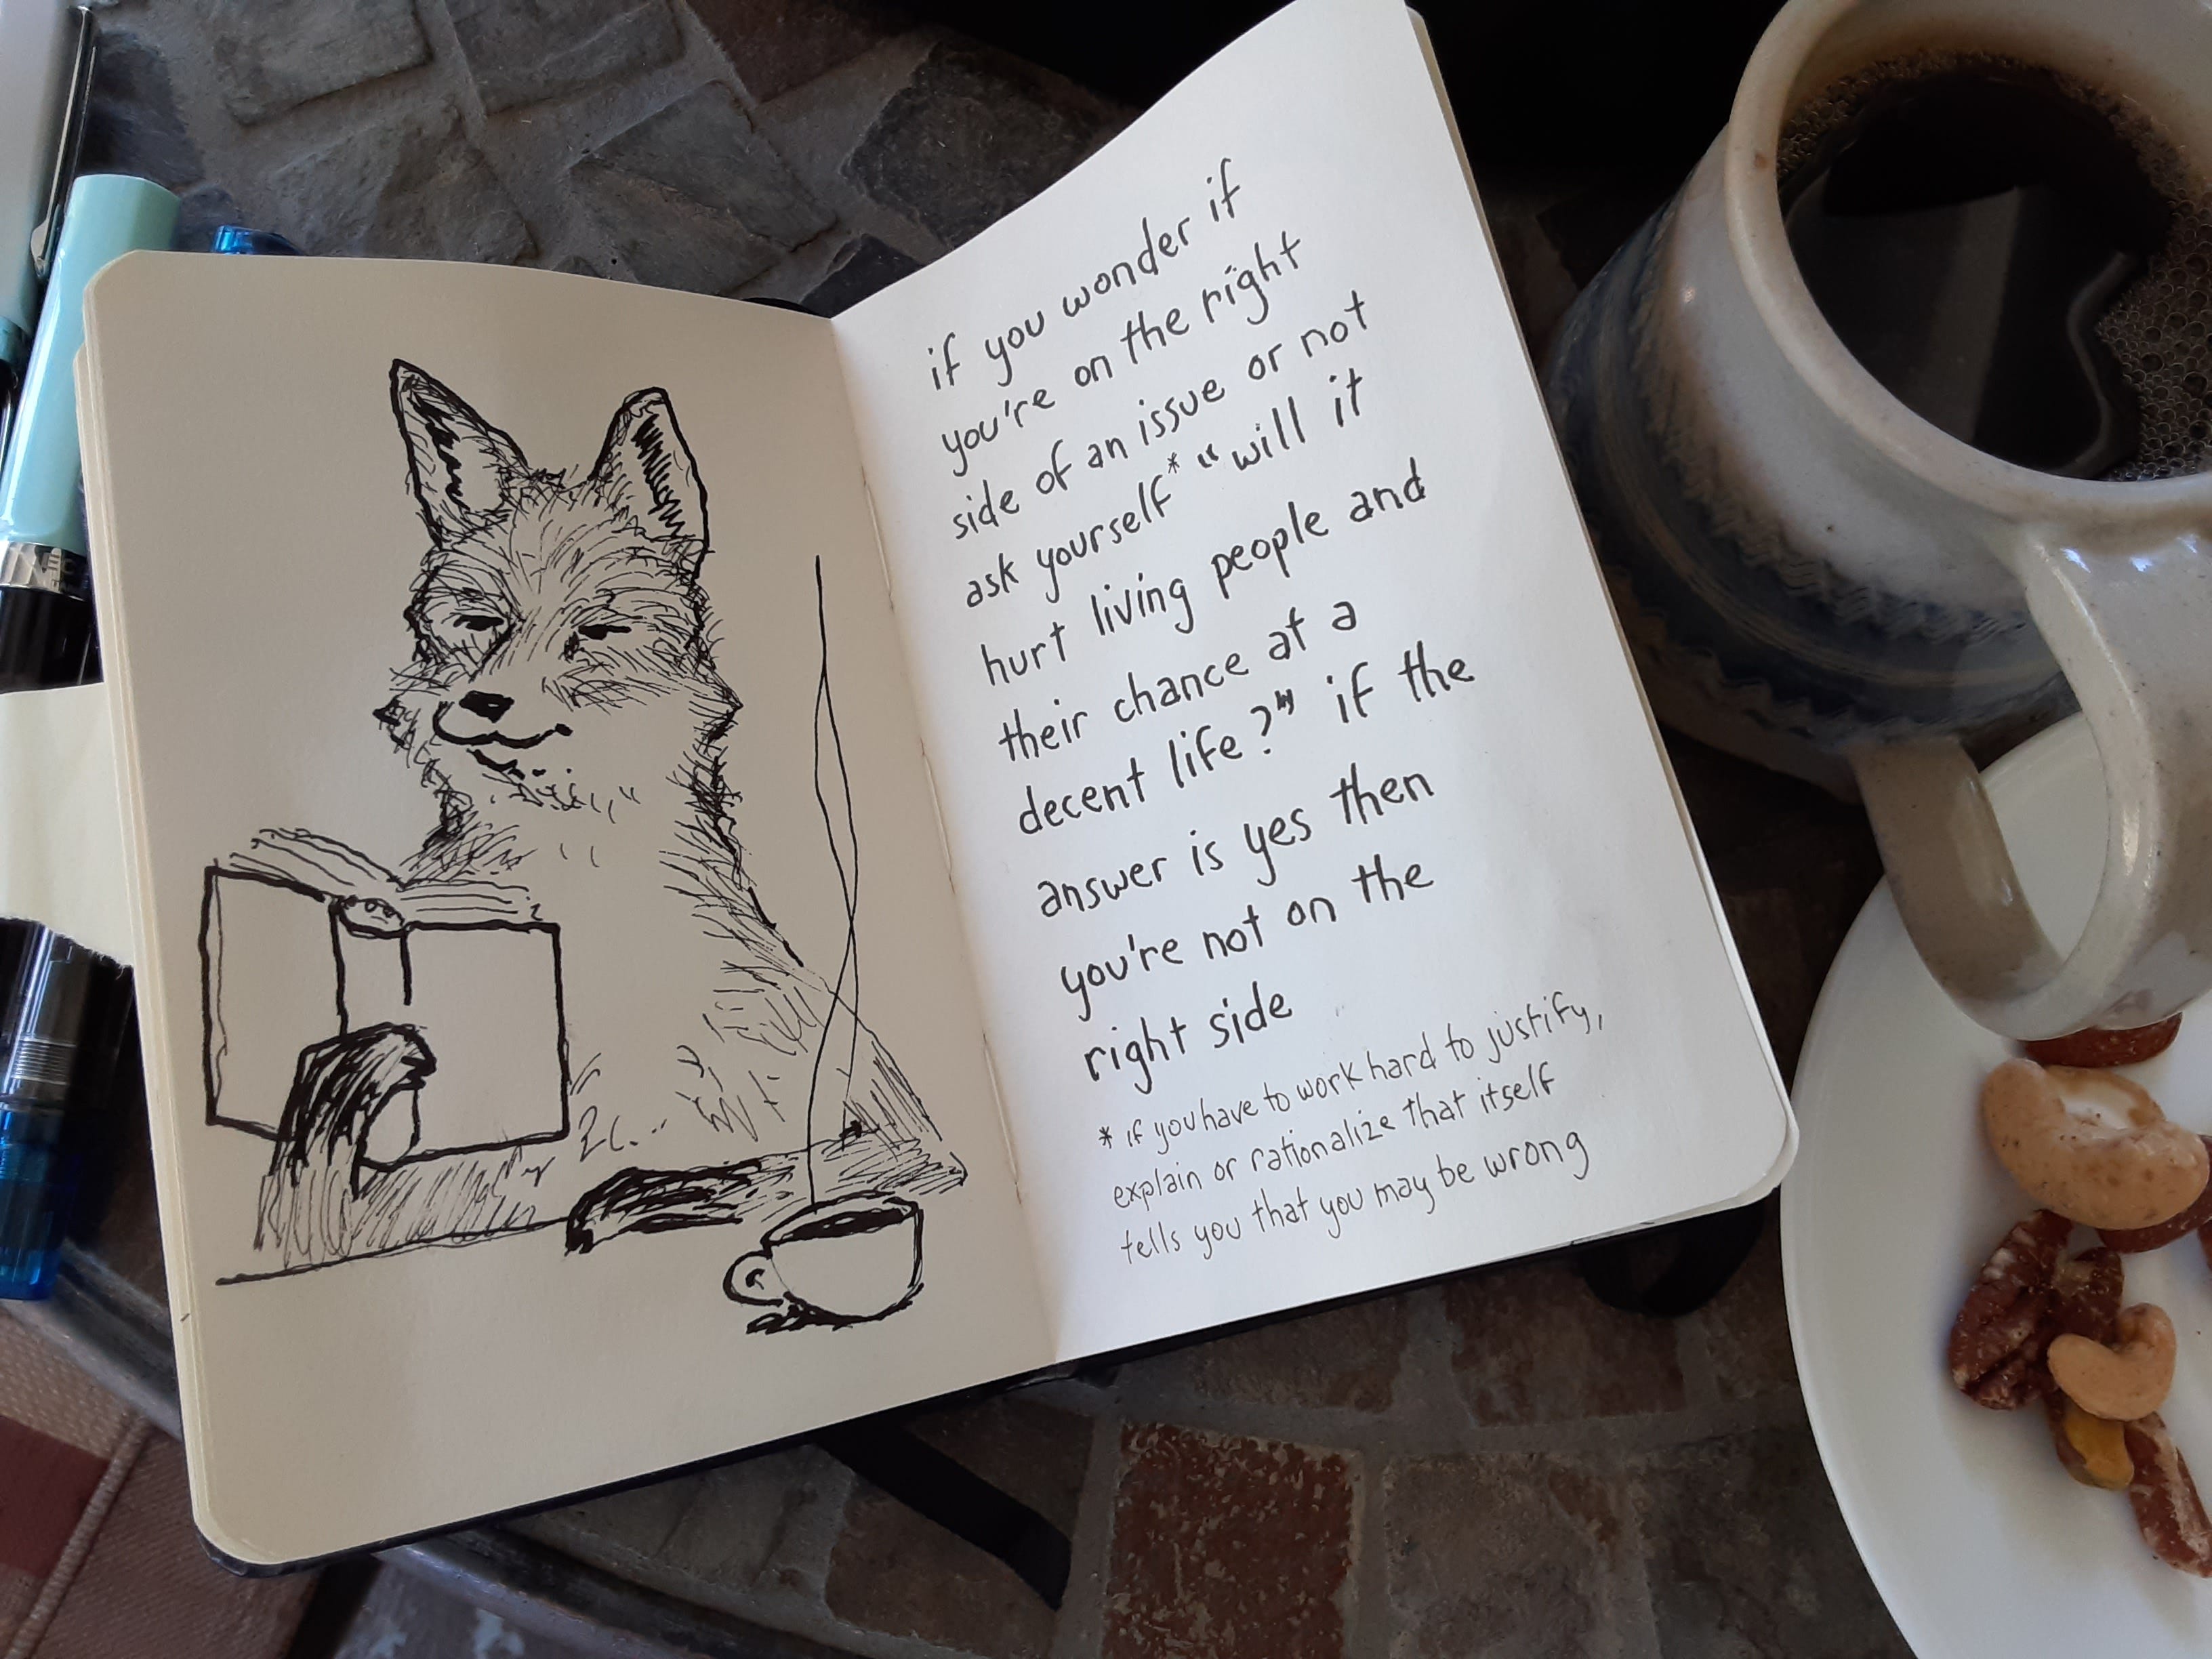 if you wonder if
you're on the right
side of an issue or not
ask yourself* "will it
hurt living people and
their chance at a
decent life?" if the
answer is yes then
you're not on the
right side
* if you have to work hard to justify,
explain or rationalize that itself
tells you that you may be wrong